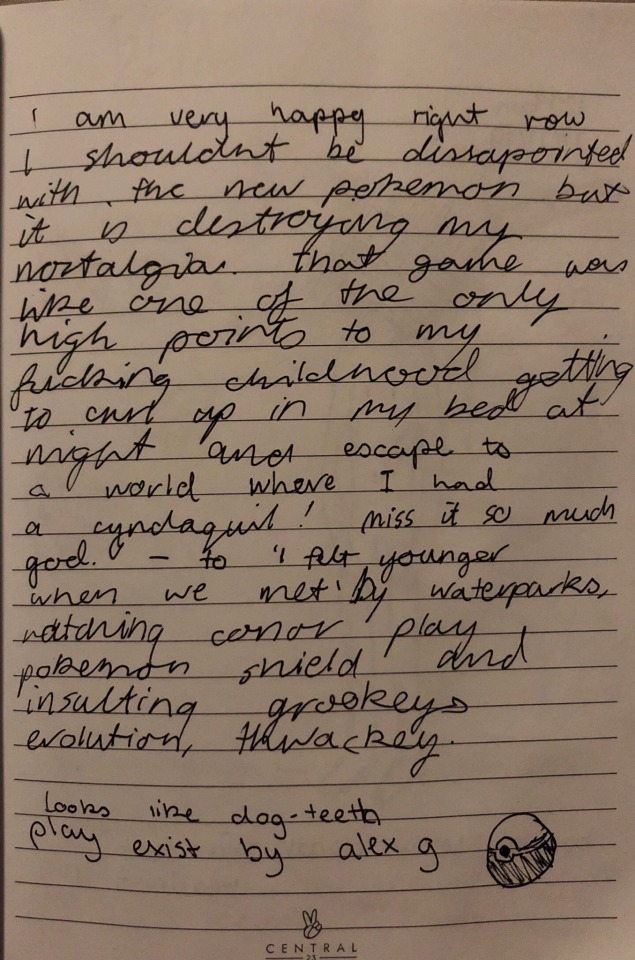 I am very happy right row
I shouldnt be dissapointed
with the new pokemon but
it is destroying my
nortalgia. that game was
like one of the only
high points to my
fucking childhood getting
to curl up in my bed at
night and escape to
a world where I had
a cyndaquil! miss it so much
god." - to "i felt younger
when we met" by waterparks,
watching conor play
pokemon shield and
insulting grookeys
evolution, thwackey.
looks like dog-teeth
play exist by alex g
CENTRAL
23